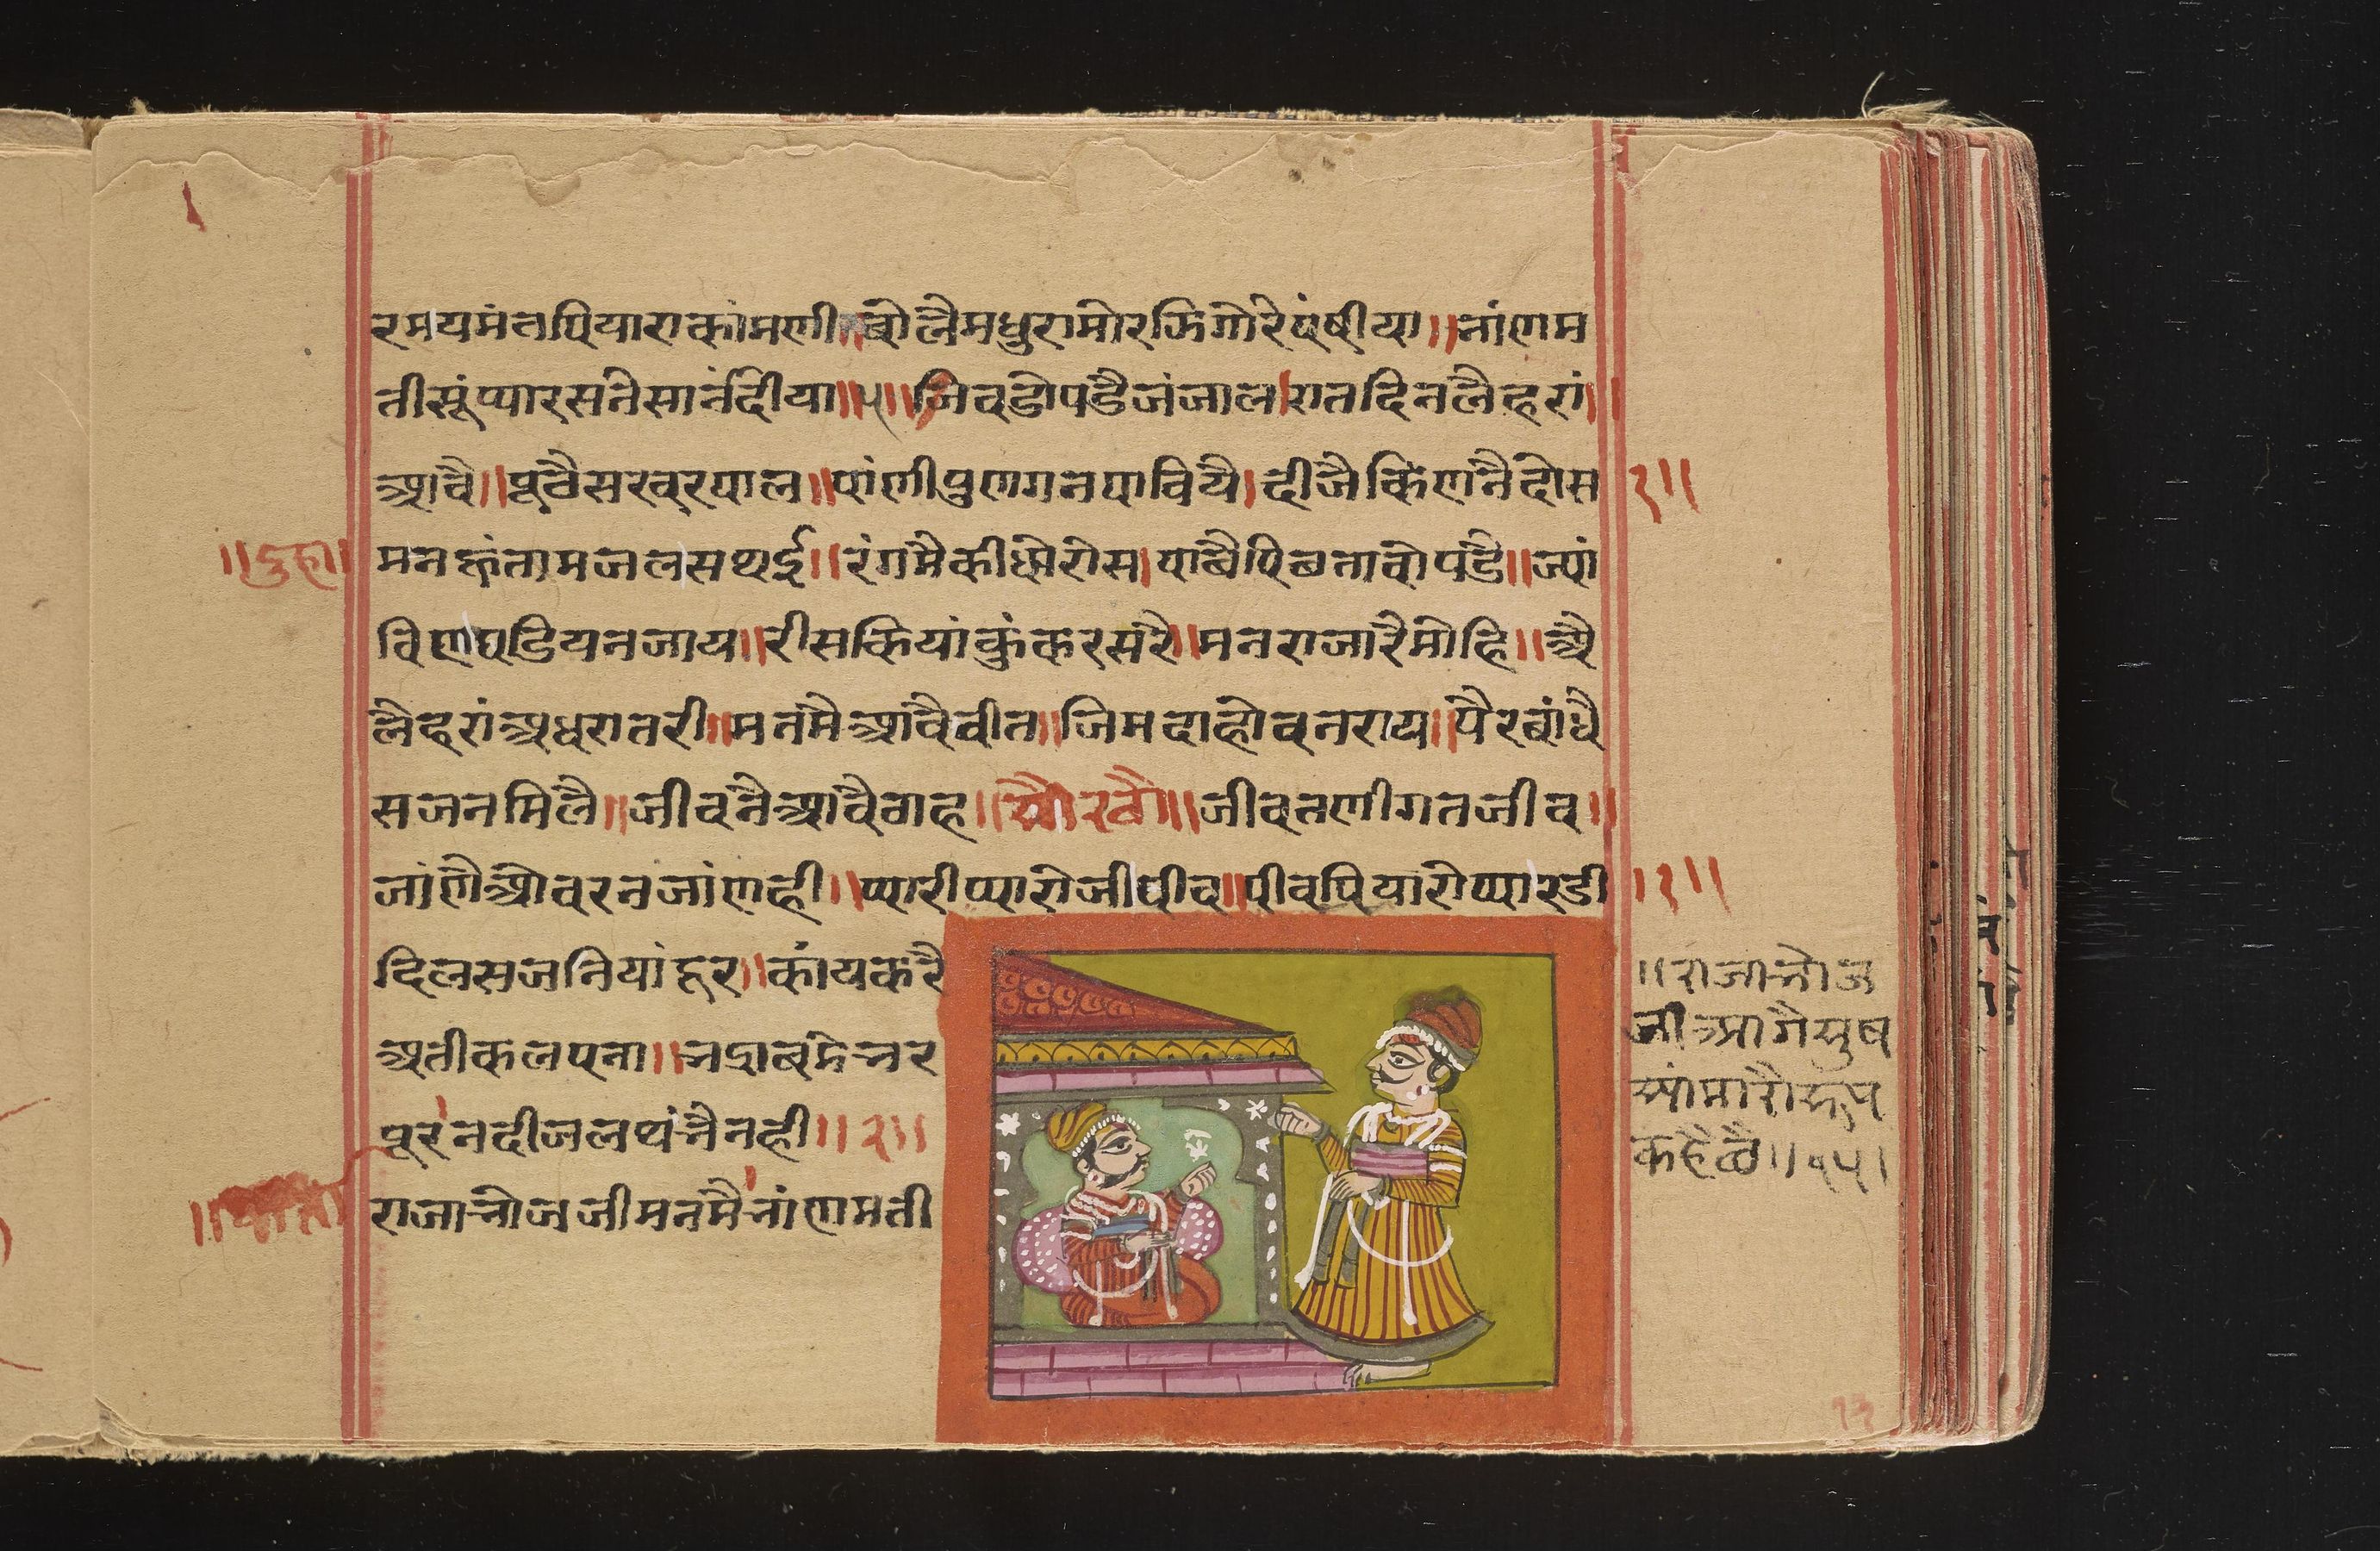 रमयमंतपियाराकांमणी॥बोलैमधुरामोरझिगोरेपंषीया॥नांगम
तीसूंप्यारसनेसानंदीया॥५॥जिवडोपडैजंजाल।रातदिनलैहरां॥
आवै॥पूवैसरवरपाल॥पांणीपुणगनपाविये।दीजैकिणनैदोस १॥
॥दुहा॥ मनह्वंतामजलसथई॥रंगमैकीधोरोस।पाबैपिबतावोपडै॥ज्यां
विणघडियनजाय॥रीसकियांकुंकरसरै॥मनराजारैमोहि॥अै
लैहरांअधरातरी॥मनमैआवैवीत॥जिमदाहोवनराय॥पैरबांधै
सजनमिलै॥जीवनैआवैवाह॥सोरठो॥जीवतणीगतजीव॥
जांणैओवरनजांणही॥प्यारीप्यारोजीपीव॥पीवपियारोप्यारडी ॥१॥
दिलसजनियांदूर॥कांयकरै
अतीकलपना॥नद्राबमेनर
पूरनदीजलथंनैनही॥२॥
राजाभोजजीमनमैनांगमती
॥राजाभोज
जीआगैसुष
कहैछै॥१५।